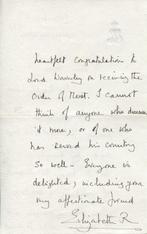 heartfelt Congratulations to
Lord Waverley on receiving the
Order of Merit. I cannot
think of anyone who deserves
it more, or of one who
has served his country
so well - Everyone is
delighted, including your
very affectionate friend
Elizabeth R